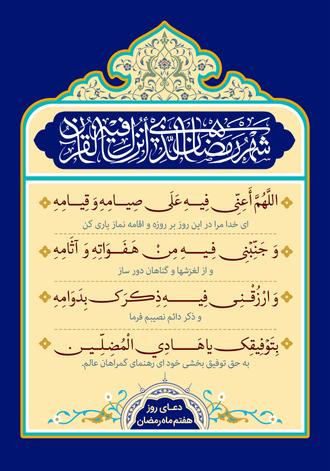 شهر رمضان الذی انزل فیه القرآن
اللَّهُمَّ أَعِنِّی فِیهِ عَلَی صِیامِهِ وَ قِیامِهِ
ای خدا مرا در این روز بر روزه و اقامه نماز یاری کن
وَ جَنِّبْنِی فِیهِ مِنْ هَفَوَاتِهِ وَ آثَامِهِ
و از لغزشها و گناهان دور ساز
وَ ارْزُقْنِی فِیهِ ذِکْرَکَ بِدَوَامِهِ
و ذکر دائم نصیبم فرما
بِتَوْفِیقِکَ یا هَادِیَ الْمُضِلِّینَ
به حق توفیق بخشی خود ای رهنمای گمراهان عالم.
دعــای روز
هفتم ماه رمضان